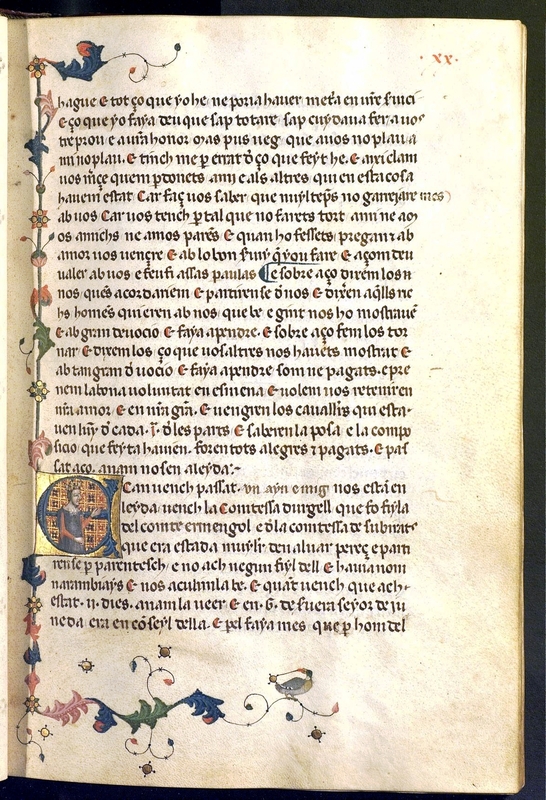 xx.
hague E tot ço que yo he ne poria haver meta en nr̄e ſervici
E ço que yo faya deu que sap tot are sap cuydava fer a uos
tre prou e a ura honor Mas pus ueg que auos no plau a
mi no plau. E tinch me ꝑ errat d̄ ço que feyt he. E axi clam
uos m̄çe quem ꝑdonets ami e als altres qui en esta cosa
hauem estat Car faç uos saber que mil temps no garrejare mes
ab uos Car uos tench ꝑ tal que no farets tort ami ne aq̄
os amichs ne amos parẽs E quan ho fessets pregant ab
amor uos uençre E ab lo bon ſeruy q̄ yo us fare E açom deu
ualer ab uos e feu fi assas paulas E sobre aço dixem los n
nos, ques acordarien E partirense d̄ nos E dixẽn aq̄lls ric
hs homẽs qui eren ab nos que be e gint nos ho mostraue
E ab gran deuocio E faya a pendre. E sobre aço fem los tor
nar E dixem los ço que uosaltres nos hauets mostrat E
ab tan gran d̄uocio E faya a pendre som ne pagats. e pre
nem la bona uoluntat en esmena E uolem uos retenir en
nr̄a amor E en nr̄a gr̄a. E uengren los cauallrs qui esta
uen hũ d̄ cada .i. d̄ les parts E saberen la posa e la compo
sicio que feyta hauien. foren tots alegres e pagats. E pas
sat aço. anam nosen a leyda:
Can uench passat un ayn e mig nos estan en
leyda uench la Comtessa durgell que fo fiyla
del comte ermengol e d̄ la comtessa de subirats
que era estada muylr den aluar pereç e parti
rense ꝑ parentesch e no ach negun fiyl dell E hauia nom
narambiays E nos acuhimla be. E quāt uench que ach
estat .ii. dies. anam la ueer E en .G. de fuera seyor de ju
neda era en cōseyl della E ꝑel faya mes que ꝑ hom del